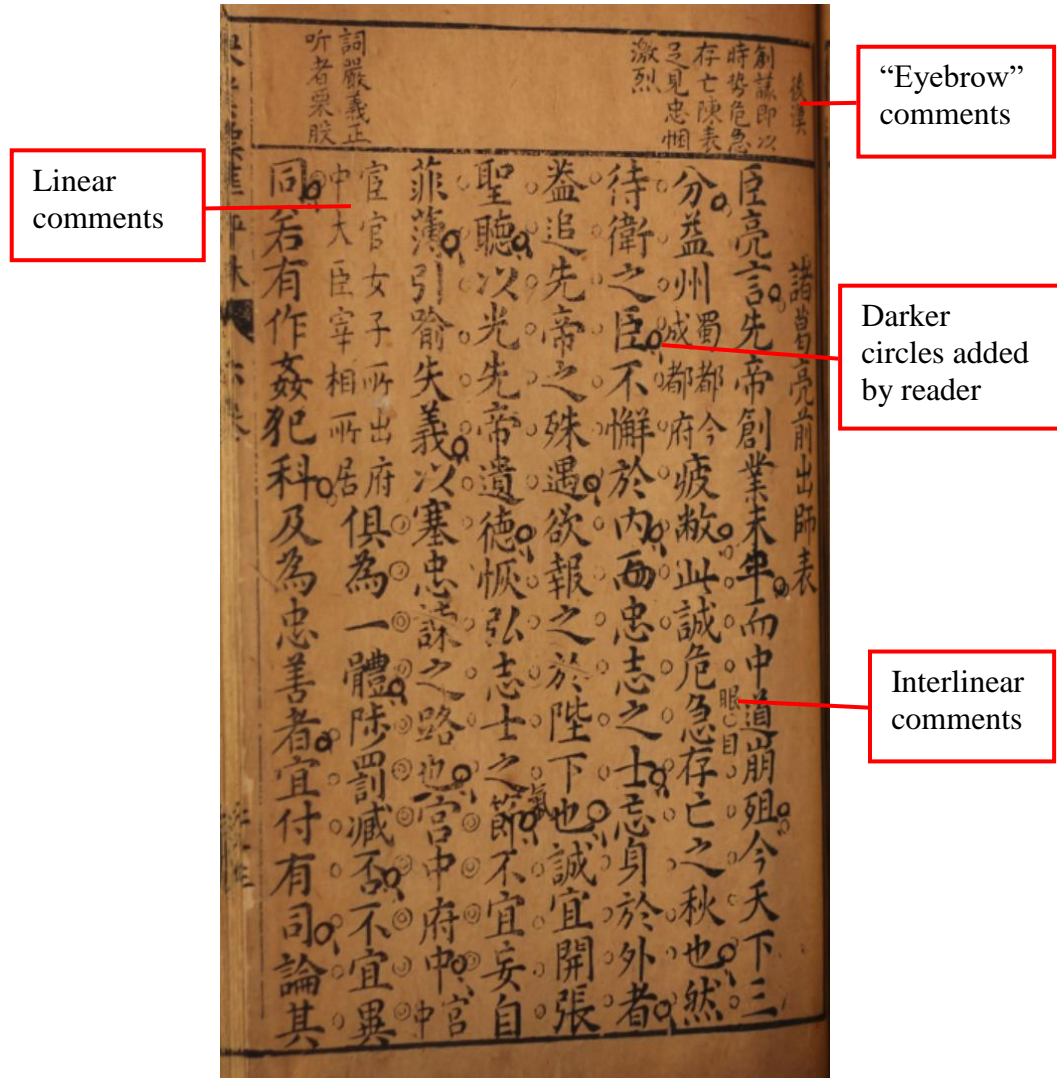 “Eyebrow” comments
Linear comments
Darker circles added by reader
Interlinear comments
後漢
創謀即以
時勢危急
存亡陳表
足見忠悃
激烈
詞嚴義正
听者栗股
諸葛亮前出師表
臣亮言先帝創業未半而中道崩殂今天下三
眼目
分益州蜀都今成都府疲敝此誠危急存亡之秋也然
待衛之臣不懈於內而忠志之士忘身於外者
葢追先帝之殊遇欲報之於陛下也誠宜開張
氣
聖聽以光先帝遺德恢弘志士之節不宜妄自
菲薄引喻失義以塞忠諫之路也宮中府中宮中
宦官女子所出府中大臣宰相所居俱為一體陟罰臧否不宜異
同若有作姦犯科及為忠善者宜付有司論其